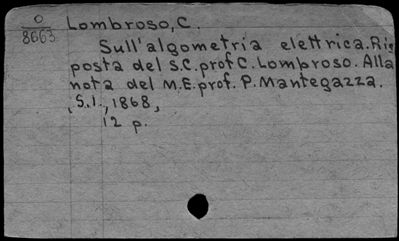 O
8663
Lombroso, C.
Sull'algometria elettrica. Ris
posta del S.C. prof C. Lombroso. Alla
nota del M.E. prof. P. Mantegazza.
, S.l., 1868,
12 p.